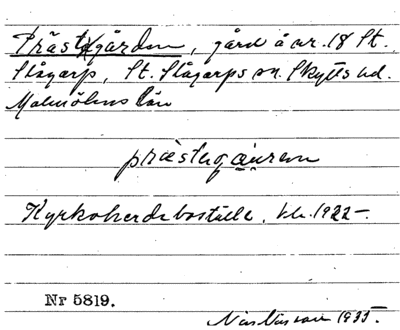 Prästgården, gård å nr. 18 St.
Slågarp, St. Slågarps sn. Skytts hd.
Malmöhus län
præstegạụren
Kyrkoherdeboställe, bl. 1922-.
Nr 5819.
1933.